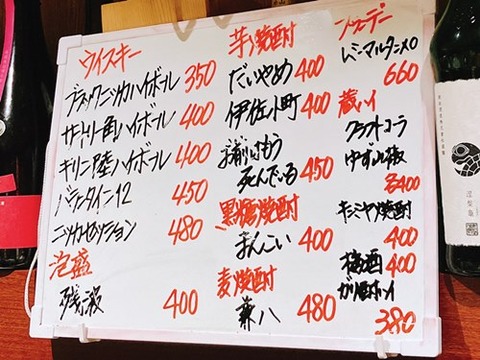 ウイスキー
ブラックニッカハイボール 350
サントリー角ハイボール 400
キリン陸ハイボール 400
バランタイン12 450
ニッカセッション 480
泡盛
残波 400
芋焼酎
だいやめ 400
伊佐小町 400
お前はもう
死んでいる 450
黒糖焼酎
まんこい 400
麦焼酎
兼八 480
ブランデー
レミーマルタン
660
蔵ハイ
クラフトコーラ
ゆず山椒
各400
キンミヤ焼酎
400
梅酒 400
380